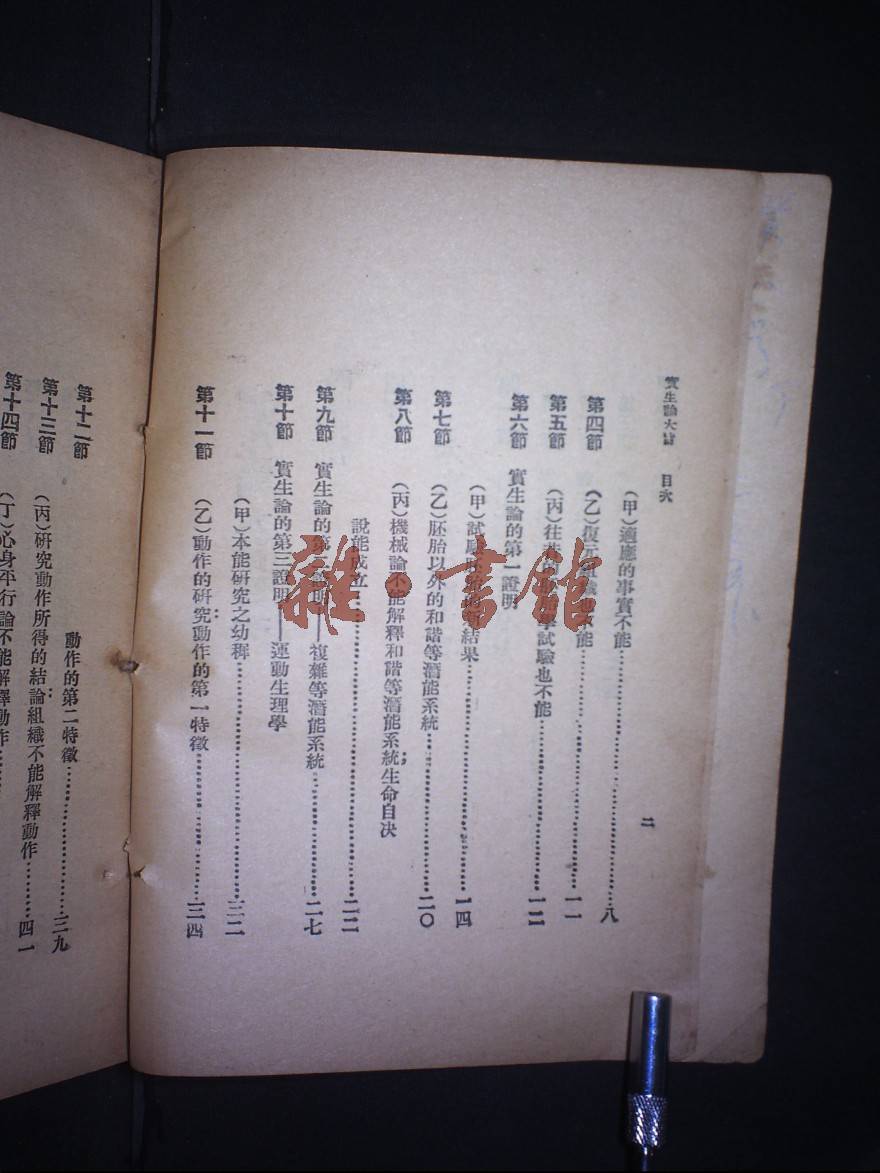 實生論大旨 目次
二
(甲)適應的事實不能……八
第四節 (乙)復元組織也不能……一一
第五節 (丙)往昔的胚胎學試驗也不能……一二
第六節 實生論的第一證明
(甲)試驗胚胎的新結果……一四
第七節 (乙)胚胎以外的和諧等潛能系統……二〇
第八節 (丙)機械論不能解釋和諧等潛能系統;生命自決
說能成立……二二
第九節 實生論的第二證明——複雜等潛能系統……二七
第十節 實生論的第三證明——運動生理學
(甲)本能研究之幼稺……三二
第十一節 (乙)動作的研究:動作的第一特徵……三四
第十二節 動作的第二特徵……三九
第十三節 (丙)研究動作所得的結論:組織不能解釋動作……四一
第十四節 (丁)心身平行論不能解釋動作……
雜·書館